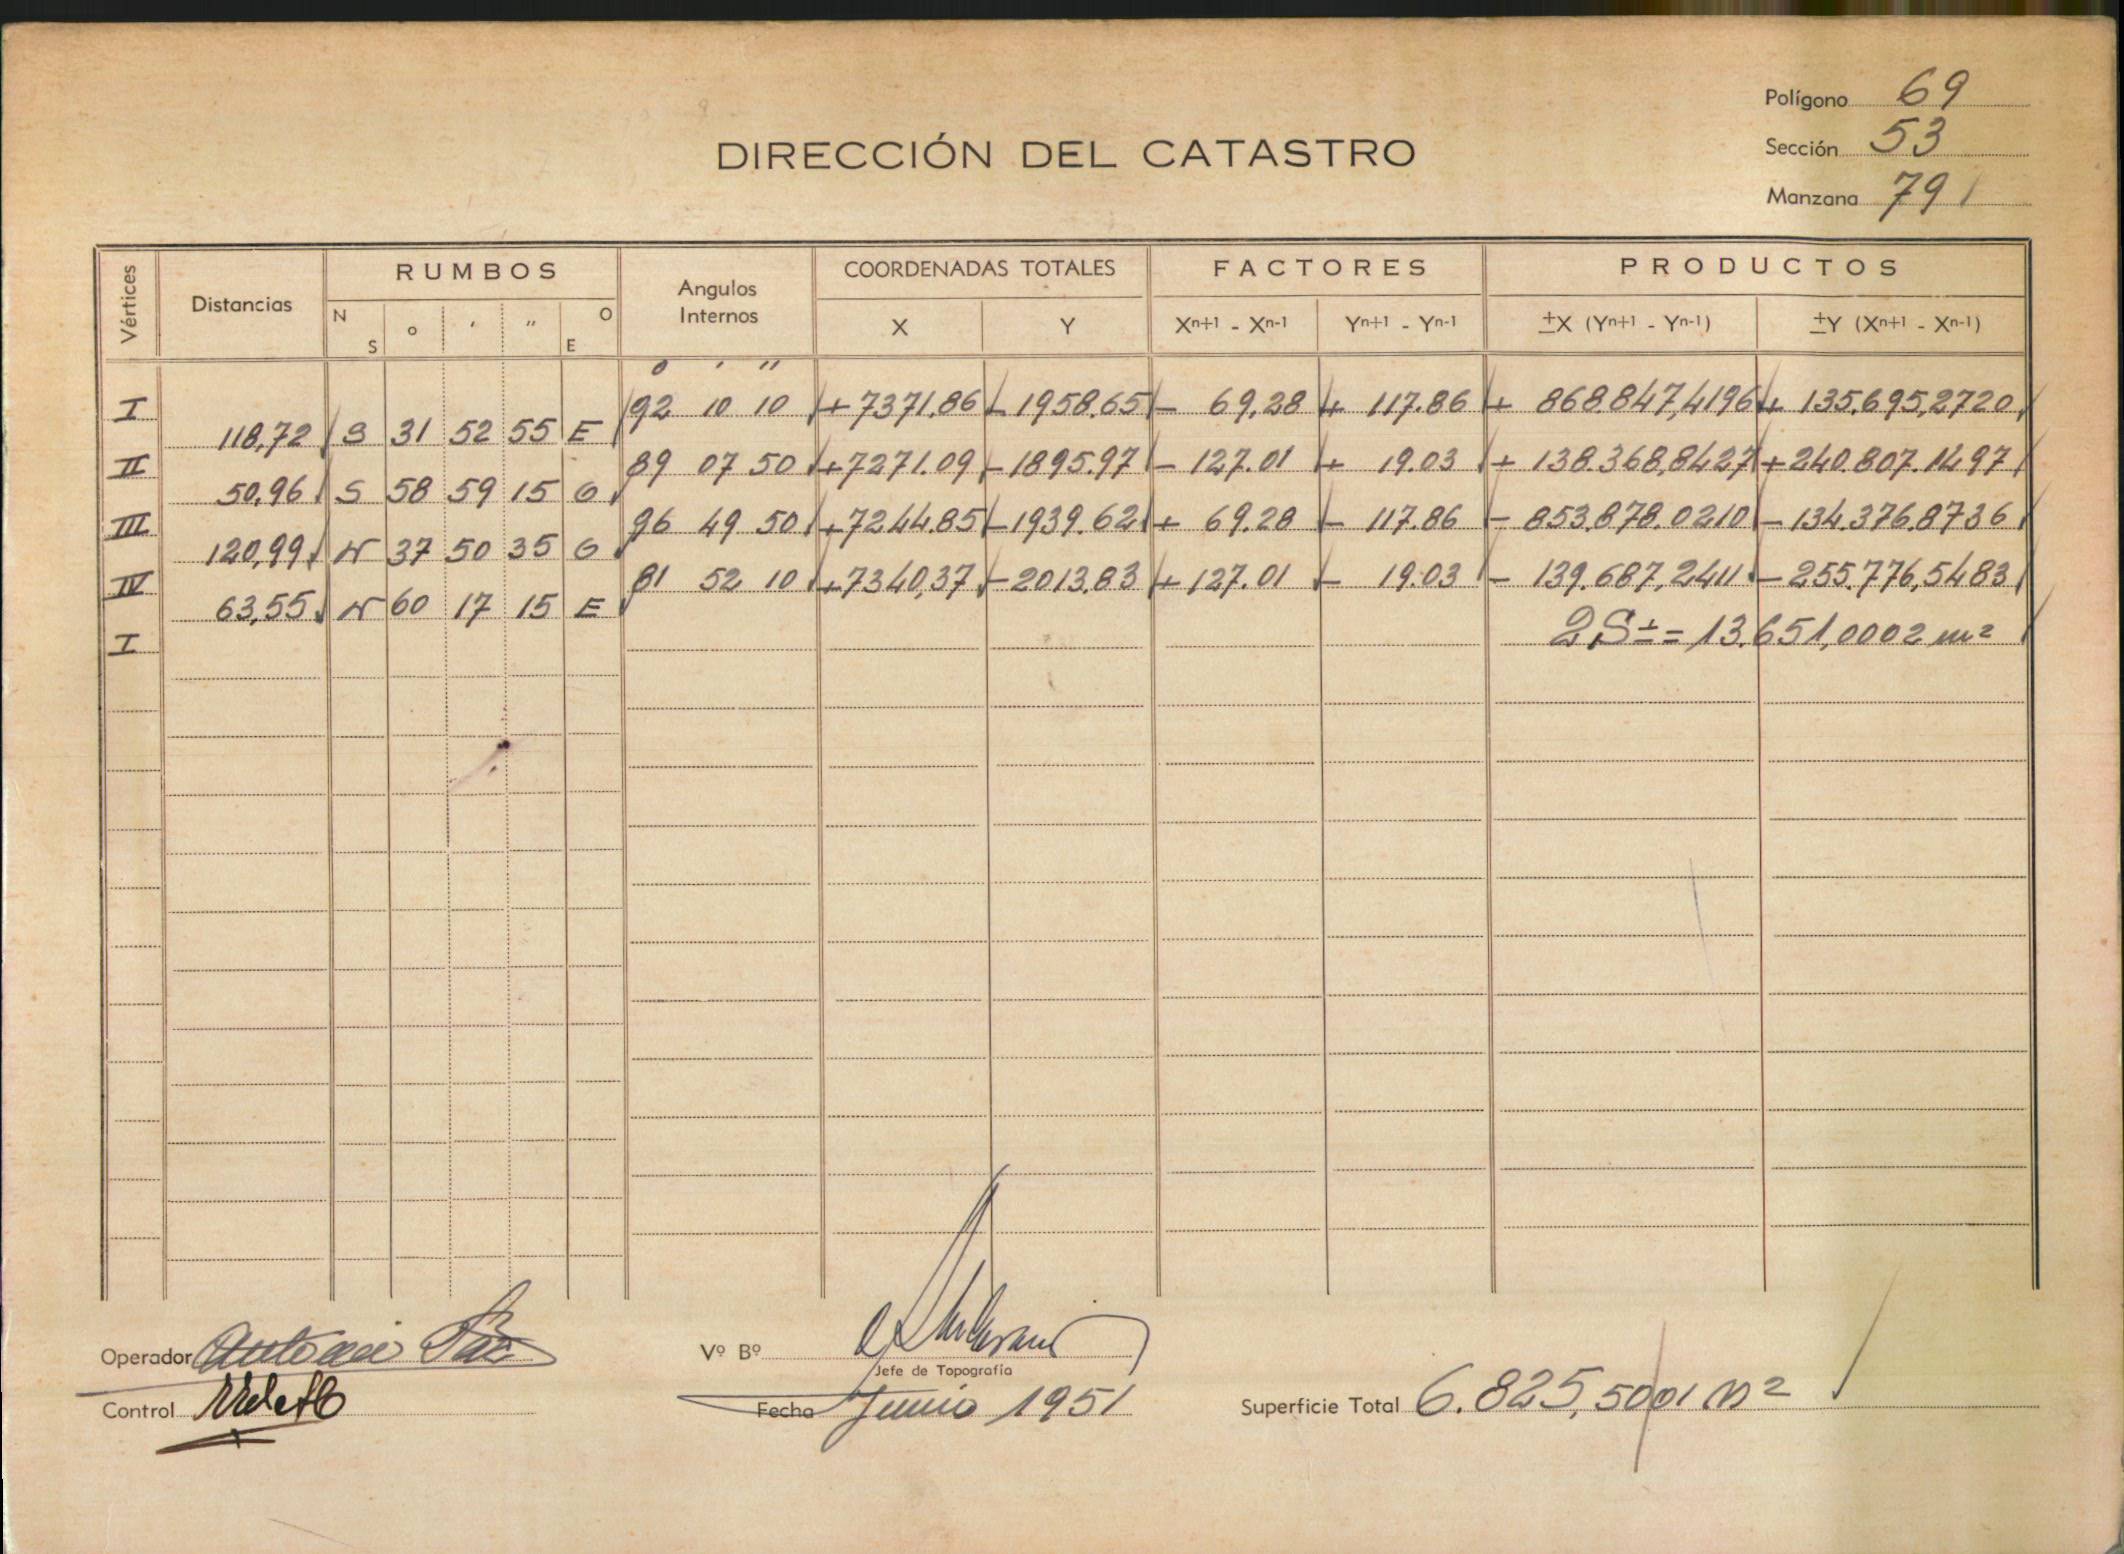 Polígono 69
Sección 53
Manzana 791
DIRECCIÓN DEL CATASTRO
Vértices Distancias RUMBOS Angulos Internos COORDENADAS TOTALES FACTORES PRODUCTOS
N S ° ' " O E X Y Xn+1 - Xn-1 Yn+1 - Yn-1 ±X (Yn+1 - Yn-1) ±Y (Xn+1 - Xn-1)
° ' "
I 92 10 10 +7371.86 -1958.65 - 69,28 + 117.86 + 868.847,4196 + 135.695,2720
118,72 S 31 52 55 E
II 89 07 50 +7271.09 -1895.97 - 127.01 + 19.03 + 138.368,8427 +240.807.1497
50,96 S 58 59 15 O
III 96 49 50 +7244.85 -1939.62 + 69.28 - 117.86 - 853.878.0210 - 134.376,8736
120,99 N 37 50 35 O
IV 81 52 10 +7340,37 -2013.83 + 127.01 - 19.03 - 139.687,2411 - 255.776,5483
63,55 N 60 17 15 E
I 2S± = 13.651,0002 m²
Operador Antonio
Vº Bº
Jefe de Topografía
Control
Fecha Junio 1951
Superficie Total 6.825,5001 m²